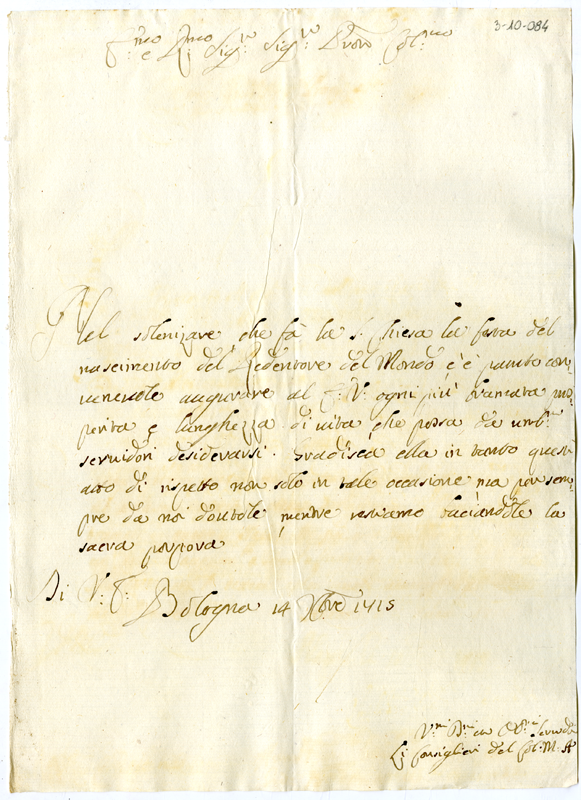 3-10-084
E.mo e R.mo Sig.re Sig.re Pron Col.mo
Nel solenizare, che fà la S. Chiesa la festa del
nascimento del Redentore del Mondo c'è paruto con,
venevole augurare al E: V: ogni più bramata pros
perità e lunghezza di vita, che possa da umb.mi
servidori desiderarsi. Gradisca ella in tanto questo
atto di rispetto non solo in tale occasione ma per sem,
pre da noi doutole, mentre restiamo baciandole la
sacra porpora
Di V: E:
Bologna 14 Xbre 1715
V.mi D.mi Servidori
Li Consiglieri del Col: M. A